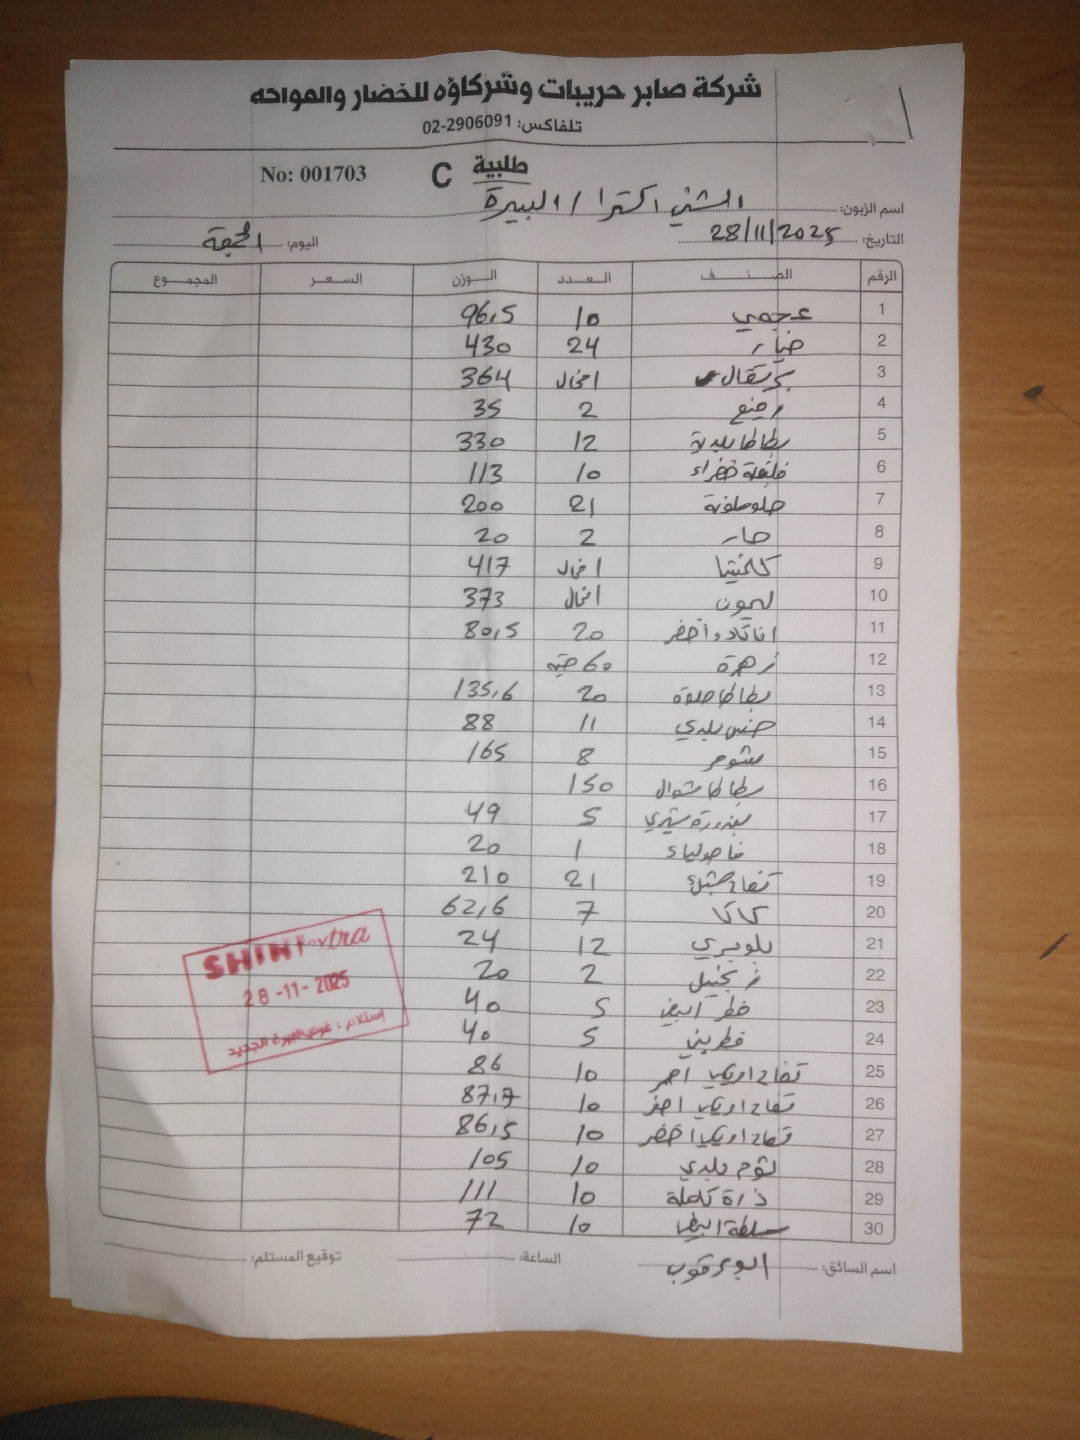 شركة صابر حريبات وشركاؤه للخضار والفواكه
تلفاكس: 02-2906091
طلبية C No: 001703
اسم الزبون: الشني اكسترا / البيرة
التاريخ: 28/11/2025 اليوم: الجمعة
الرقم الصنف العدد الوزن السعر المجموع
1 عجمي 10 96,5
2 خيار 24 430
3 برتقال 364
4 2 35
5 بطاطا بلدية 12 330
6 فليفلة خضراء 10 113
7 حلو ملونة 21 200
8 حار 2 20
9 كلمنتينا 417
10 ليمون 373
11 اخضر 20 80,5
12 زهرة 60 حبه
13 بطاطا حلوة 20 135,6
14 خس بلدي 11 88
15 شومر 8 165
16 بطاطا شوال 150
17 بندورة شيري 5 49
18 فاصولياء 1 20
19 تفاح 21 210
20 كاكا 7 62,6
21 بلوبيري 12 24
22 زنجبيل 2 20
23 فطر ابيض 5 40
24 فطر بني 5 40
25 تفاح امريكي احمر 10 86
26 تفاح امريكي اصفر 10 87,7
27 تفاح امريكي اخضر 10 86,5
28 ثوم بلدي 10 105
29 ذرة كاملة 10 111
30 10 72
SHINI extra
28-11-2025
إستلام : فرع البيرة الجديد
اسم السائق: الساعة: توقيع المستلم: